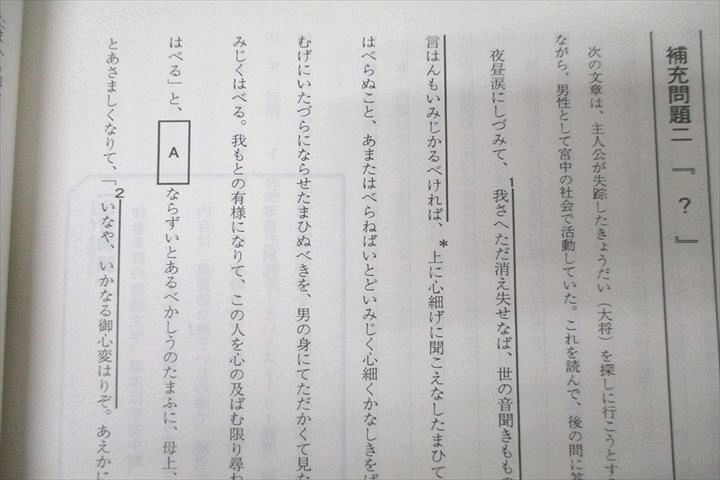 補充問題二 『 ? 』
次の文章は、主人公が失踪したきょうだい（大将）を探しに行こうとする
ながら、男性として宮中の社会で活動していた。これを読んで、後の問に答
夜昼涙にしづみて、1我さへただ消え失せなば、世の音聞きももの
言はんもいみじかるべければ、*上に心細げに聞こえなしたまひて
はべらぬこと、あまたはべらねばいとどいみじく心細くかなしきをば
むげにいたづらにならせたまひぬべきを、男の身にてただかくて見な
みじくはべる。我もとの有様になりて、この人を心の及ばむ限り尋ね
はべる」と、 A ならずいとあるべかしうのたまふに、母上、
とあさましくなりて、「2いなや、いかなる御心変はりぞ。あえかに